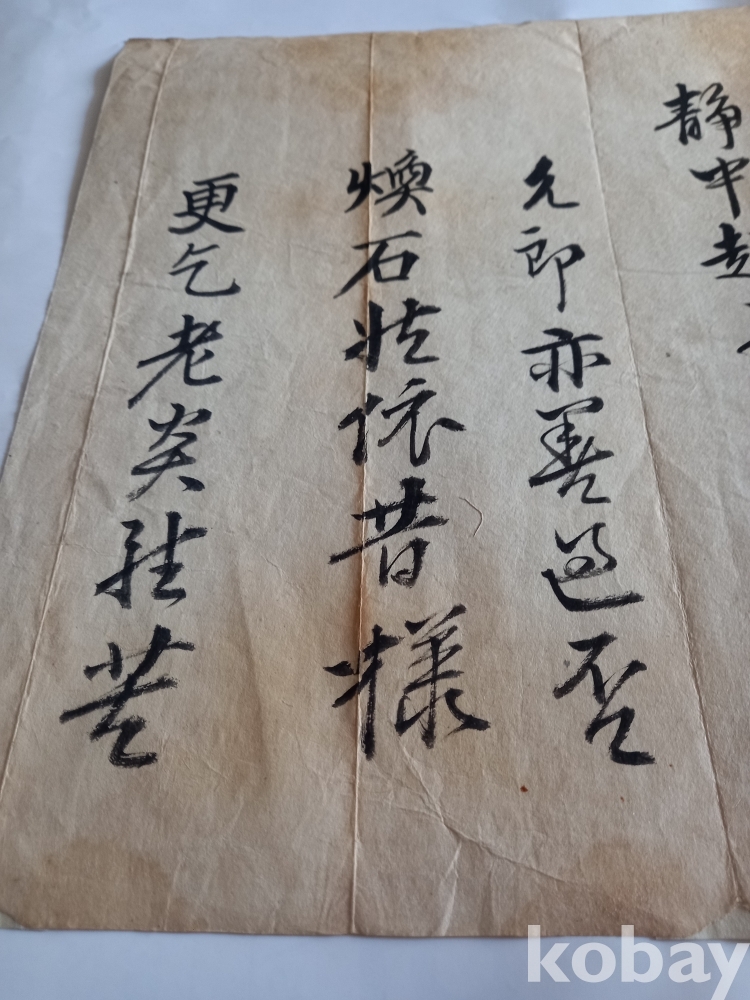 靜中起
允郎亦善過否
煥石壯依昔樣
更乞老炎
kobay